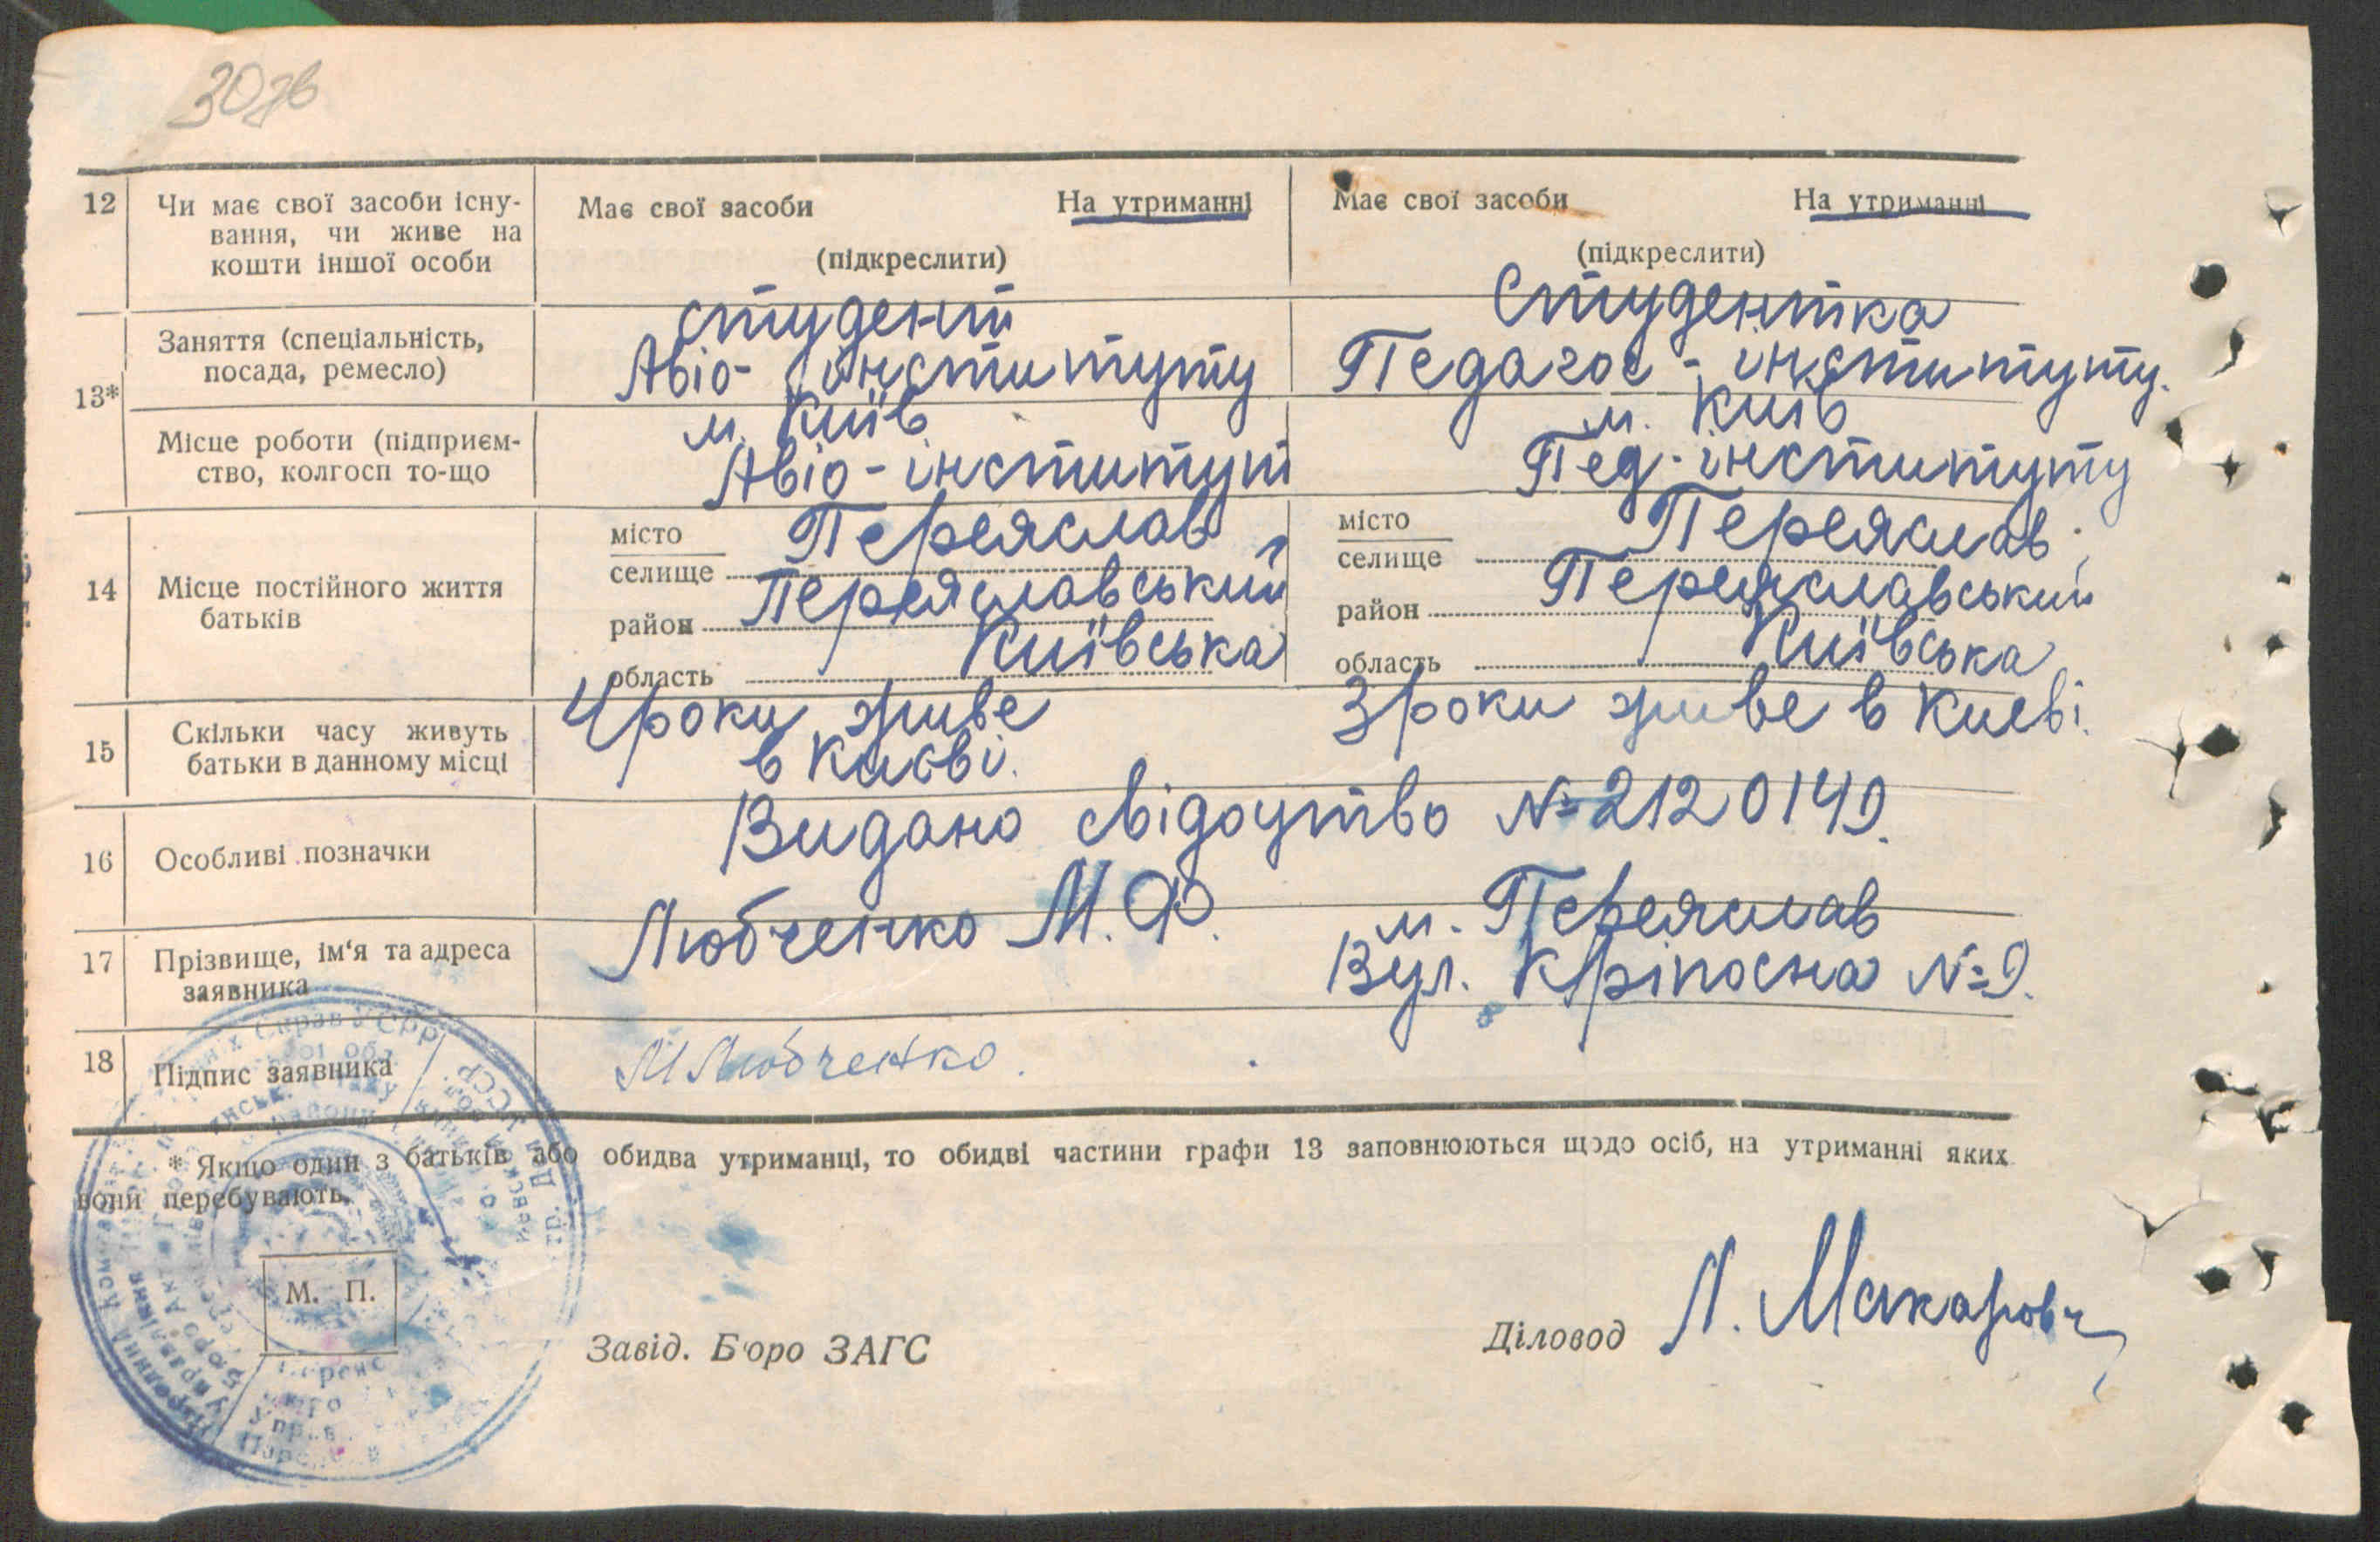 30зв
12 Чи має свої засоби існу-
вання, чи живе на
кошти іншої особи
Має свої засоби На утриманні
(підкреслити)
Має свої засоби На утриманні
(підкреслити)
13*
Заняття (спеціальність,
посада, ремесло)
студент
Авіо-інституту
м. Київ
Студентка
Педагог-інституту.
м. Київ
Місце роботи (підприєм-
ство, колгосп то-що
Авіо-інститут
Пед-інституту
14 Місце постійного життя
батьків
місто
селище Переяслав
район Переяславський
область Київська
місто
селище Переяслав
район Переяславський
область Київська
15 Скільки часу живуть
батьки в данному місці
4 роки живе
в Києві.
3 роки живе в Києві.
16 Особливі позначки
Видано свідоцтво №2120149.
17 Прізвище, ім'я та адреса
заявника
Любченко М.Ф.
м. Переяслав
Вул. Кріпосна №9.
18 Підпис заявника
М Любченко.
* Якщо один з батьків або обидва утриманці, то обидві частини графи 13 заповнюються щодо осіб, на утриманні яких
вони перебувають.
М. П.
Завід. Бюро ЗАГС
Діловод Л. Макарова